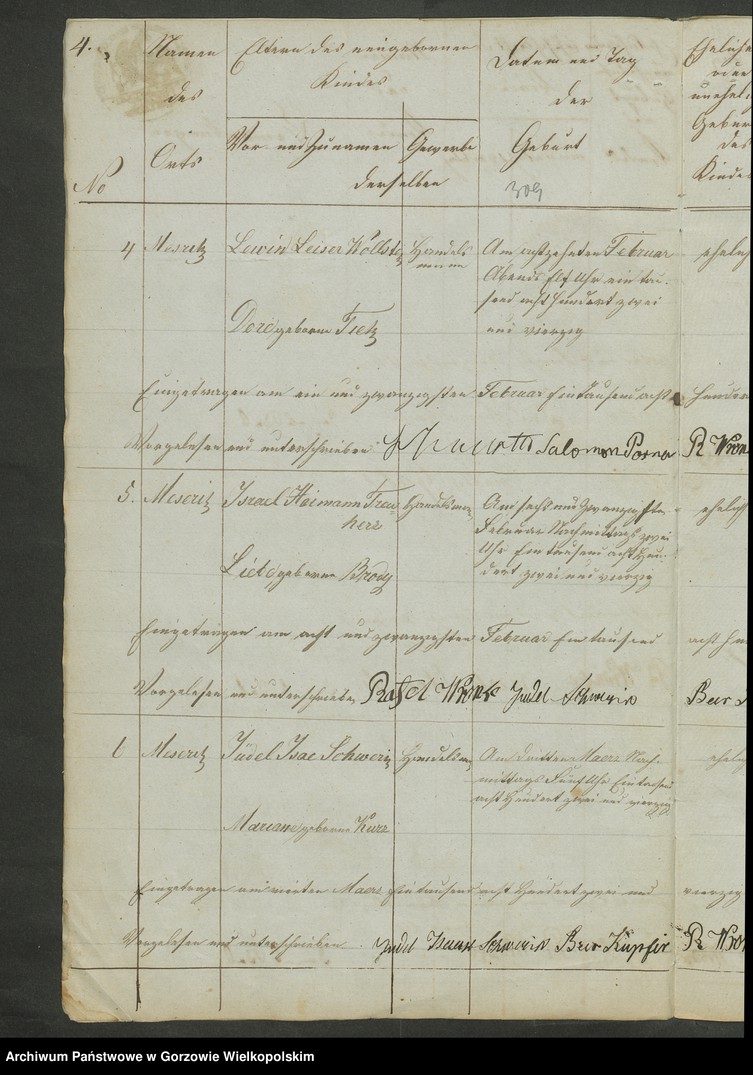 4.
Namen
des
Orts
No
Eltern des neugebornen
Kindes
Vor- und Zunamen
Gewerbe
derselben
Datum und Tag
der
Geburt
309
Eheliche
oder
unehel
Geburt
des
Kindes
4 Mesritz Lewin Leiser Wollstei Handels
mann
Am achtzehnten Februar
Abends Elf Uhr ein tau-
send acht hundert zwei
und vierzig
ehelich
Dore geborne Tietz
Eingetragen am ein und zwanzigsten Februar Eintausend acht hunder
Vorgelesen und unterschrieben Salomon Posner R Wron
5. Meseritz Israel Heimann Treu-
herz
Handelsman
Am sechs und zwanzigsten
Februar Nachmittags zwei
Uhr Ein tausend acht Hun-
dert zwei und vierzig
ehelich
Liebe geborne Brody
Eingetragen am acht und zwanzigsten Februar Ein tausend acht Hu
Vorgelesen und unterschrieben Wronke Judel Schwerin Beer
6 Meseritz Jüdel Isac Schwerin Handelsm
Am dritten Maerz Nach-
mittags Fünf Uhr Eintausend
acht Hundert zwei und vierzig
ehelich
Mariane geborne Kurz
Eingetragen am vierten Maerz Ein tausend acht Hundert zwei und vierzig
Vorgelesen und unterschrieben. Judel Schwerin Beer Küpfer R Wron
Archiwum Państwowe w Gorzowie Wielkopolskim